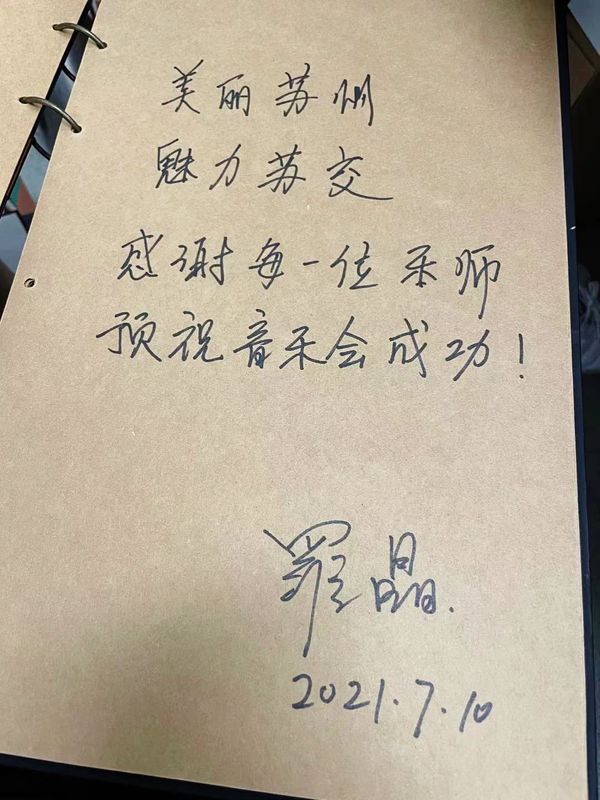 美丽苏州
魅力苏交
感谢每一位乐师
预祝音乐会成功!
罗晶.
2021.7.10